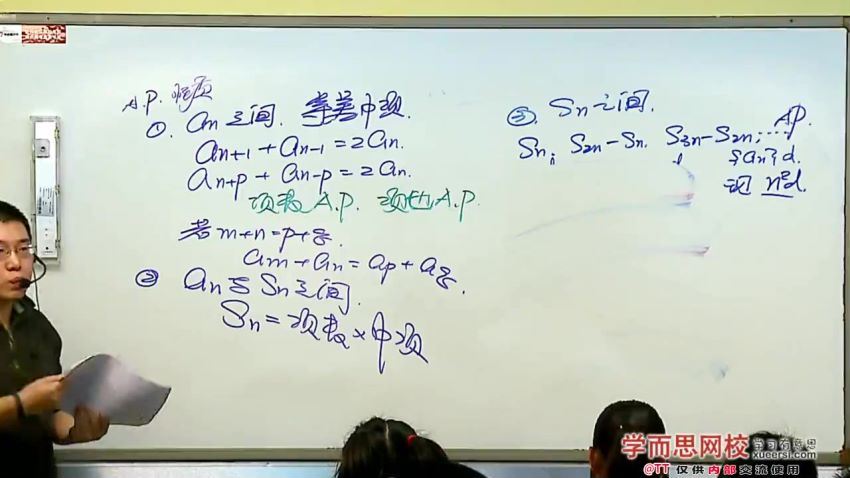 A.P. 性质
①. an 之间. 等差中项.
an+1 + an-1 = 2an.
an+p + an-p = 2an.
项数A.P. 项也A.P.
若m+n=p+q.
am+an=ap+aq.
② an与Sn之间.
Sn=项数×中项
③. Sn之间.
Sn, S2n-Sn, S3n-S2n, … A.P.
{an} d.
现 n²d.
学而思网校
学习有意思
xueersi.com
@TT 仅供内部交流使用